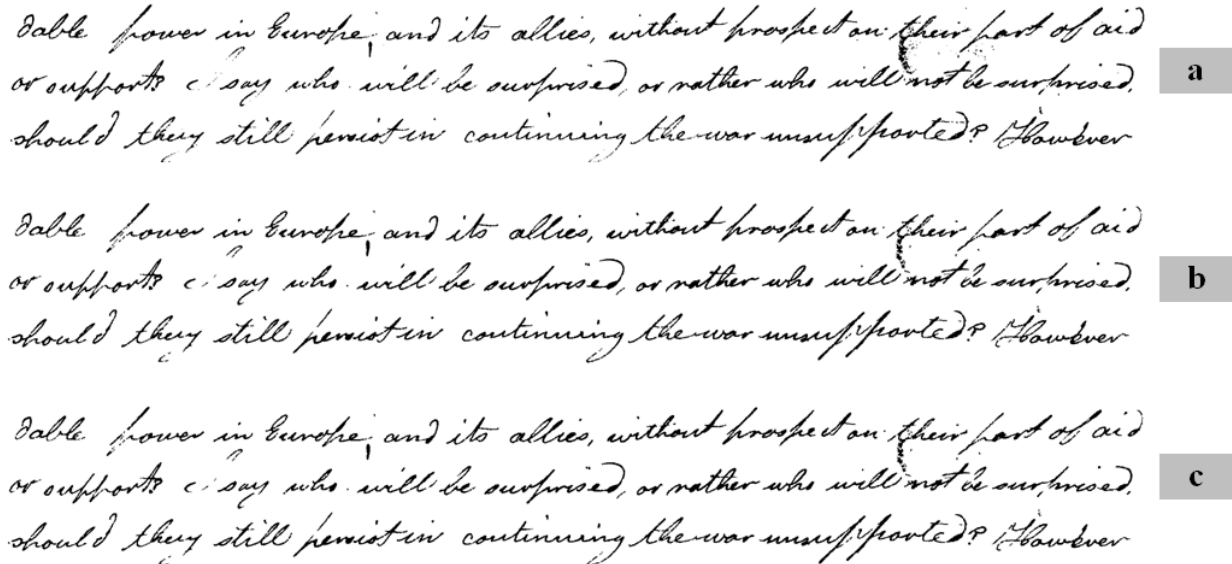 dable power in Europe, and its allies, without prospect on their part of aid
or support? I say who will be surprised, or rather who will not be surprised,
should they still persist in continuing the war unsupported? However
a
dable power in Europe, and its allies, without prospect on their part of aid
or support? I say who will be surprised, or rather who will not be surprised,
should they still persist in continuing the war unsupported? However
b
dable power in Europe, and its allies, without prospect on their part of aid
or support? I say who will be surprised, or rather who will not be surprised,
should they still persist in continuing the war unsupported? However
c